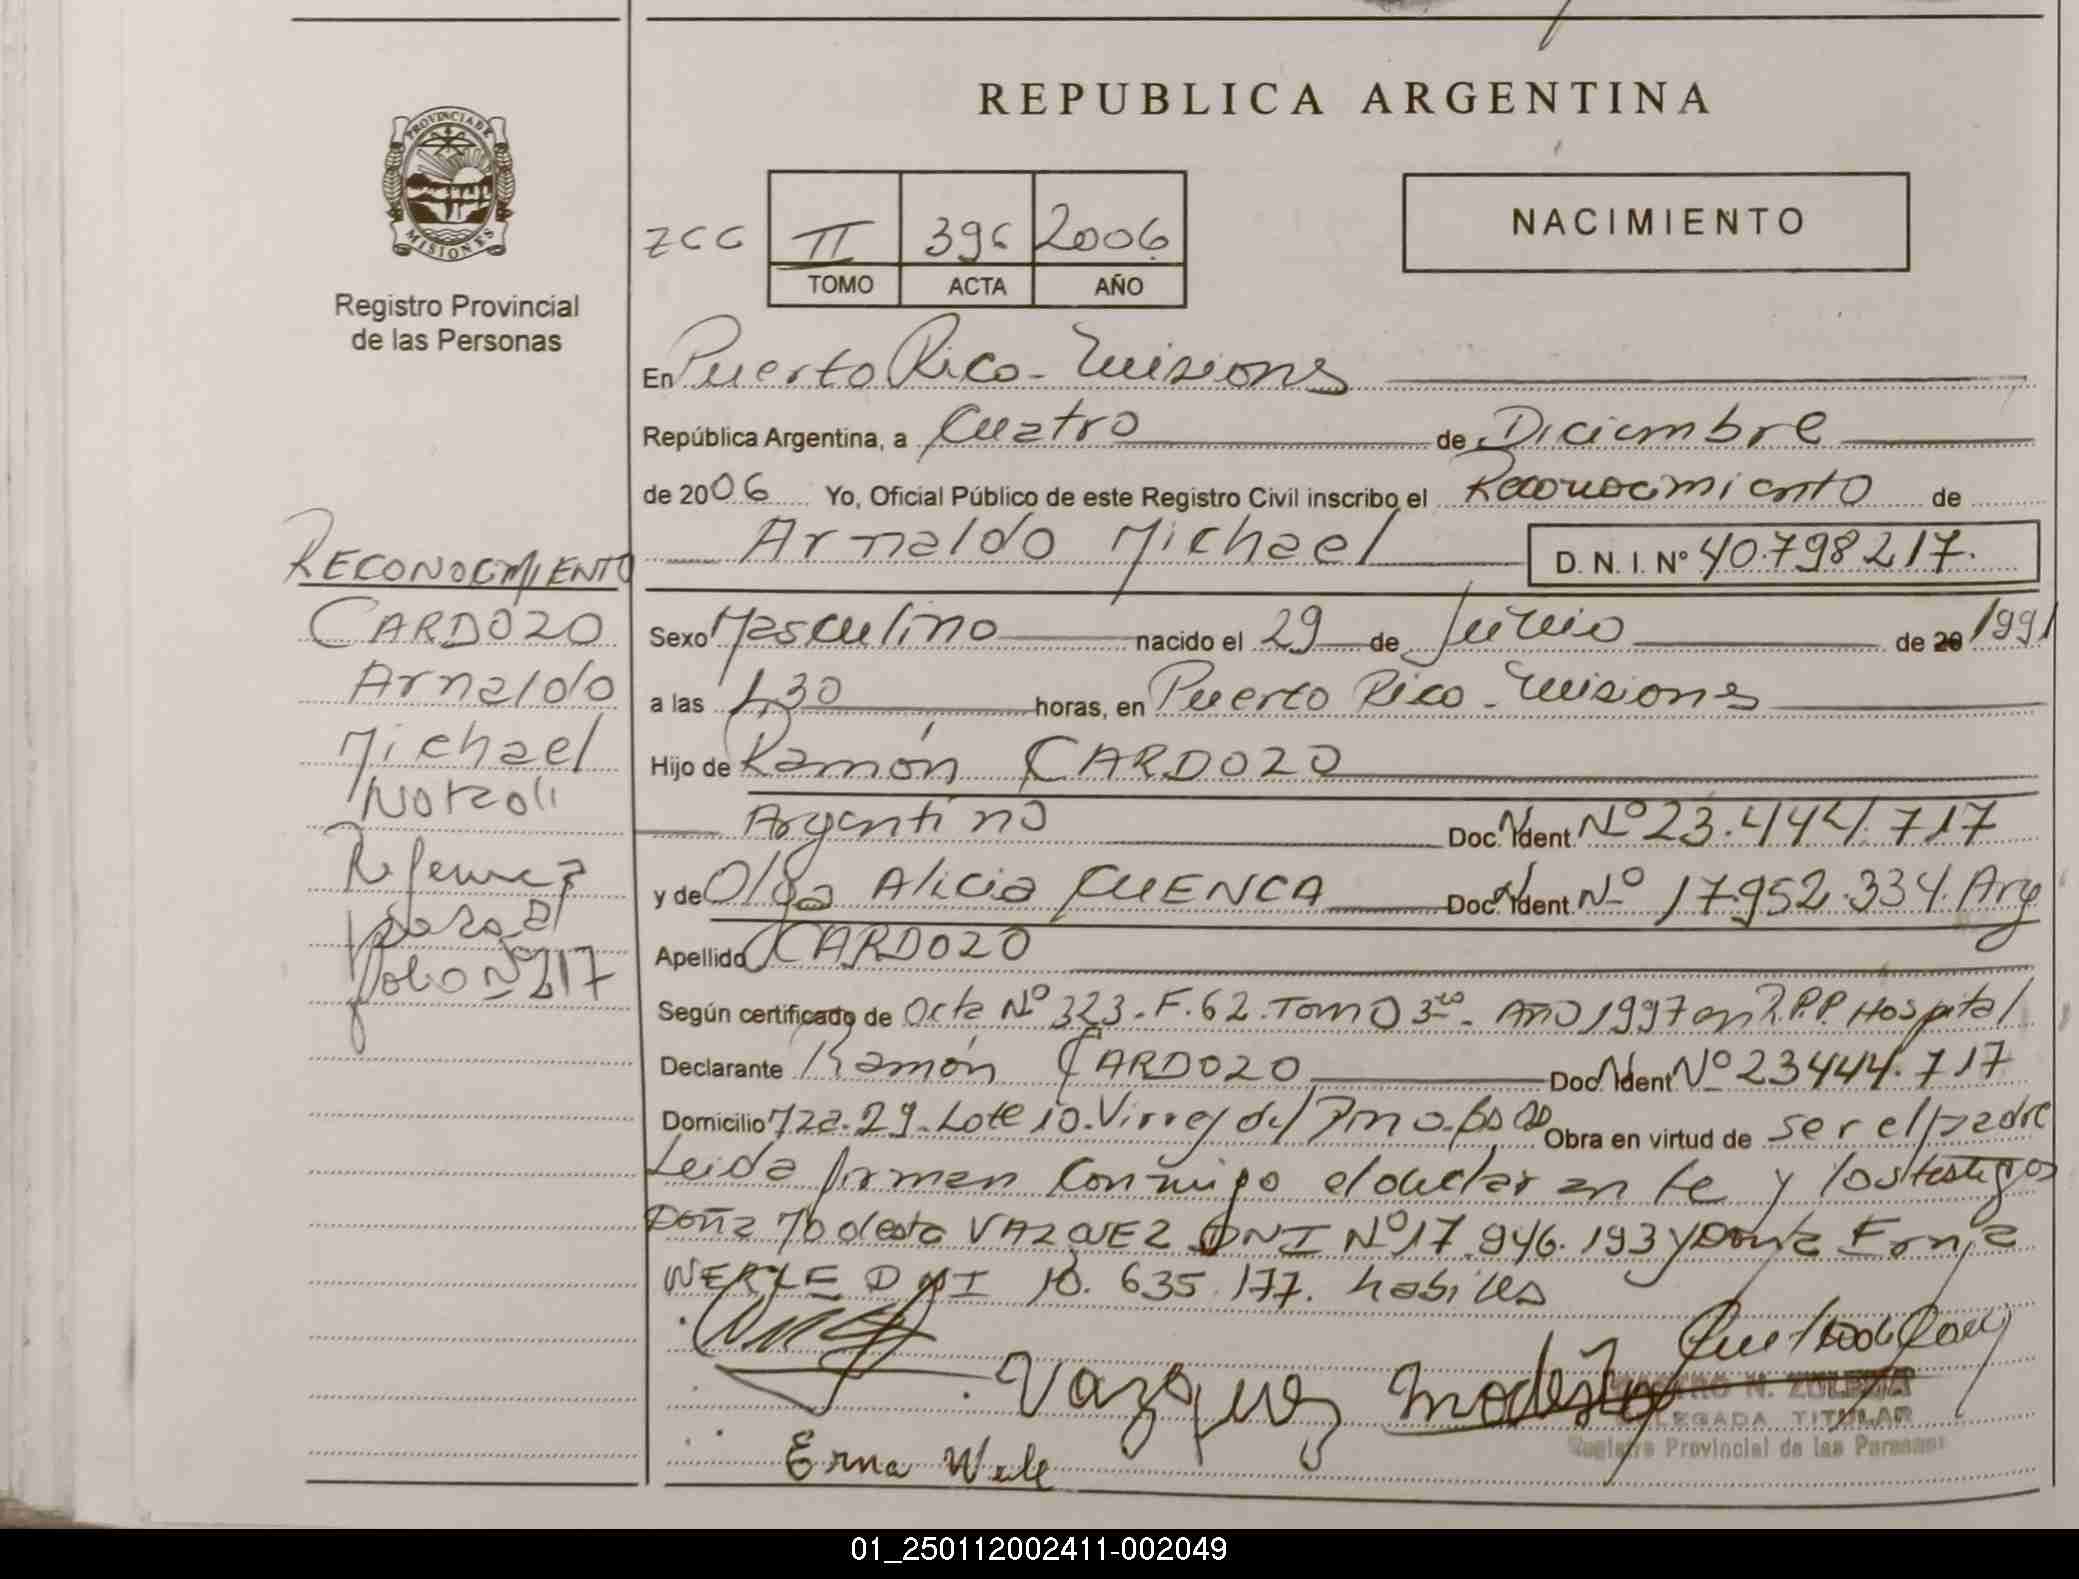 REPUBLICA ARGENTINA
PROVINCIA DE
MISIONES
Registro Provincial
de las Personas
NACIMIENTO
II 396 2006
TOMO ACTA AÑO
En Puerto Rico - Misiones
República Argentina, a Cuatro de Diciembre
de 2006 Yo, Oficial Público de este Registro Civil inscribo el Reconocimiento de
Arnaldo Michael D. N. I. Nº 40.798217.
Sexo Masculino nacido el 29 de Junio de 20 1991
a las 1,30 horas, en Puerto Rico - Misiones
Hijo de Ramón CARDOZO
Argentino Doc. Ident. Nº 23.444.717
y de Olga Alicia CUENCA Doc. Ident. Nº 17.952.334. Arg
Apellido CARDOZO
Según certificado de Acta Nº 323 - F. 62. Tomo 3ro - Año 1997 en Hospital
Declarante Ramón CARDOZO Doc. Ident Nº 23444.717
Domicilio Mza. 29 - Lote 10. Virrey del Pino. Bs as Obra en virtud de ser el padre
Leida firman conmigo el declarante y los testigos
Doña Modesta VAZQUEZ DNI Nº 17.946.193 y Doña Erna
WERLE DNI 10.635.177. habiles
Vazquez Modesta
DELEGADA TITULAR
Registro Provincial de las Personas
Erna Werle
RECONOCIMIENTO
CARDOZO
Arnaldo
Michael
Nota de
Referencia
pasa al
folio nº 217
01_250112002411-002049